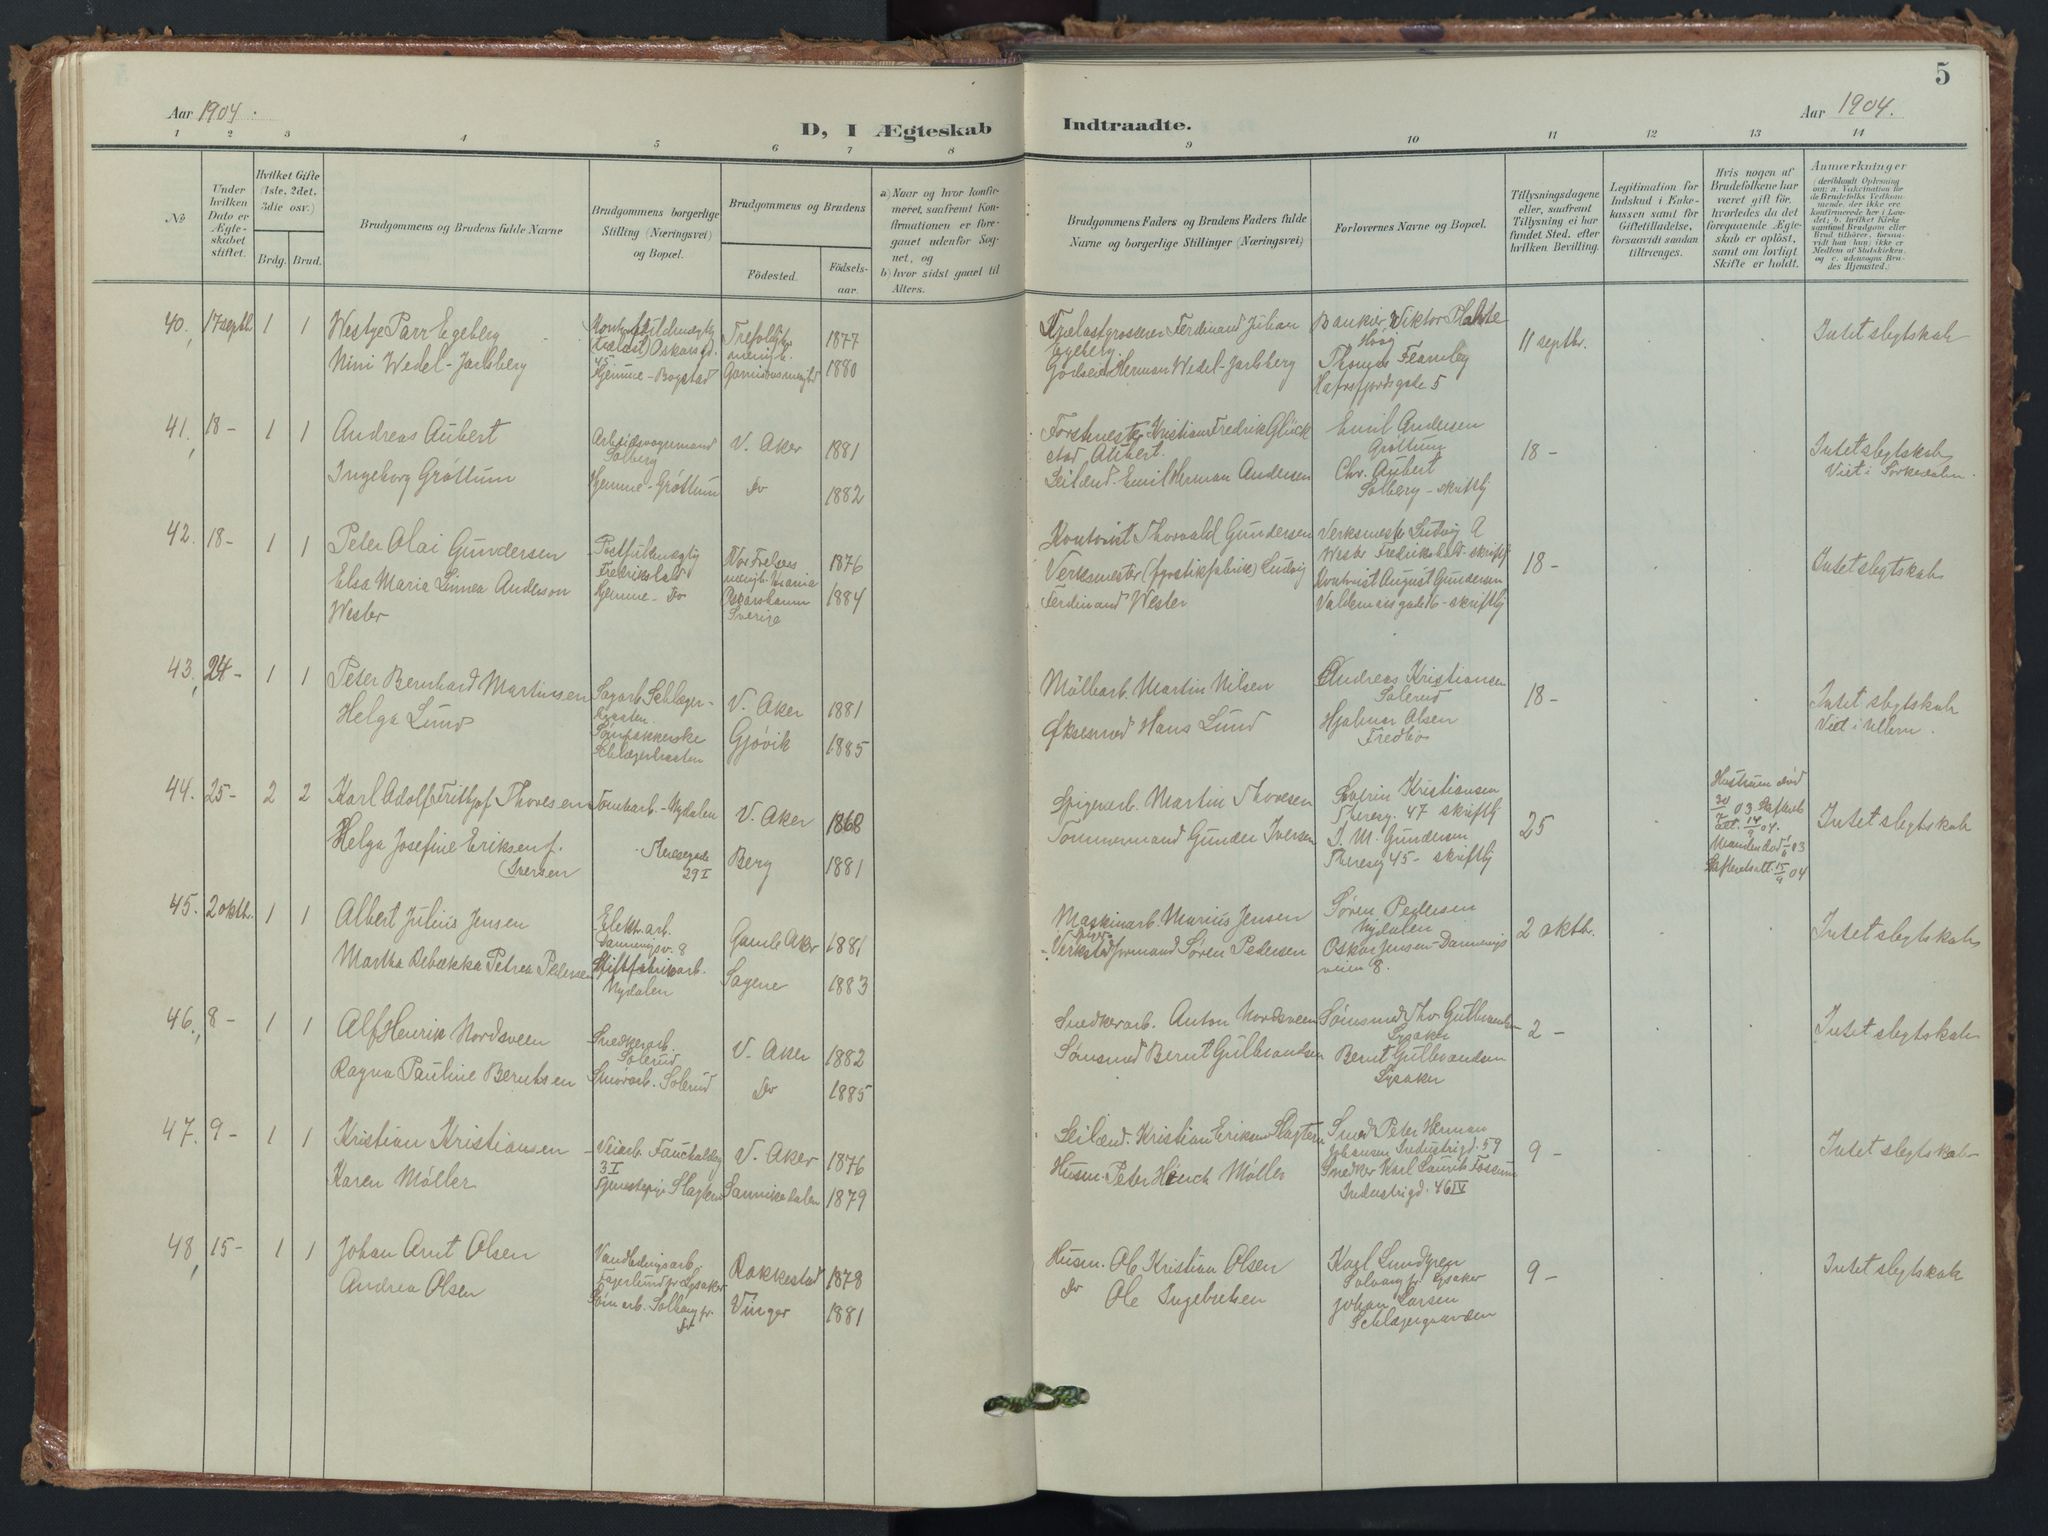 5
Aar 1904.
D, I Ægteskab Indtraadte.
Aar 1904.
1 2 3 4 5 6 7 8 9 10 11 12 13 14
No
Under hvilken Dato er Ægteskabet stiftet.
Hvilket Gifte (1ste, 2det, 3die osv.)
Brdg. Brud.
Brudgommens og Brudens fulde Navne
Brudgommens borgerlige Stilling (Næringsvei) og Bopæl.
Brudgommens og Brudens
Födested.
Födselsaar.
a) Naar og hvor konfirmeret, saafremt Konfirmationen er foregaaet udenfor Sognet, og
b) hvor sidst gaaet til Alters.
Brudgommens Faders og Brudens Faders fulde Navne og borgerlige Stillinger (Næringsvei)
Forlovernes Navne og Bopæl.
Tillysningsdagene eller, saafremt Tillysning ei har fundet Sted, efter hvilken Bevilling.
Legitimation for Indskud i Enkekassen samt for Giftetilladelse, forsaavidt saadan tiltrænges.
Hvis nogen af Brudefolkene har været gift før, hvorledes da det foregaaende Ægteskab er opløst, samt om lovligt Skifte er holdt.
Anmærkninger
40, 17 septb. 1 1
Westye Parr Egeberg
Nini Wedel-Jarlsberg
Oskarsgd. 45
Hjemme - Bogstad
1877
1880
Trælastgrosserer Ferdinand Julian Egeberg
Herman Wedel-Jarlsberg
Bankier Viktor Plahte
Thomas Fearnley
Hafrsfjordsgade 5
11 septbr.
Intet slegtskab
41, 18 - 1 1
Andreas Aubert
Ingeborg Gróttum
Solberg
Hjemme - Gróttum
V. Aker
Do
1881
1882
Forstmester Kristian Fredrik Glückstad Aubert.
Leilænd. Emil Herman Andersen
Emil Andersen
Gróttum
Chr. Aubert
Solberg - skriftlj
18 -
Intet slegtskab
Viet i Sørkedalen.
42. 18 - 1 1
Peter Olai Gundersen
Elsa Maria Linnea Anderson Wester
Postfuldmægtig
Fredrikshald
Hjemme - Do
Vor Frelsers
Oskarshamn
Sverige
1876
1884
Kontorist Thorvald Gundersen
Verksmester (fyrstikfabrik) Ludvig Ferdinand Wester
Verksmester Ludvig A
Wester Fredrikshald - skriftlj
Kontorist August Gundersen
Valdemarsgade 16 - skriftlj
18 -
Intet slegtskab
43, 24 - 1 1
Peter Bernhard Martinsen
Helga Lund
V. Aker
Gjøvik
1881
1885
Møllearb. Martin Nilsen
Øksesmed Hans Lund
Andreas Kristiansen
Solerud
Hjalmar Olsen
Fredbo
18 -
Intet slegtskab
Viet i Ullern.
44. 25 - 2 2
Karl Adolf Frithjof Thovesen
Helga Josefine Eriksen f. Iversen
Tomtarb. - Nydalen
Theresegade 29 I
V. Aker
Berg
1868
1881
Spigerarb. Martin Thovesen
Tømmermand Gunder Iversen
Severin Kristiansen
Theresg. 47 skriftlj
I. M. Gundersen
Theresg 45 - skriftlj
25
Hustruen død
Intet slegtskab
45. 2 oktb. 1 1
Albert Julius Jensen
Martha Rebækka Petrea Pedersen
Elektr. arb.
Danmingsv. 8
Stiftfabrikarb.
Nydalen
Gamle Aker
Sagene
1881
1883
Maskinarb. Marius Jensen
Verkstedformand Søren Pedersen
Søren Pedersen
Nydalen
Oskar Jensen - Dannings
veien 8.
2 oktb.
Intet slegtskab
46, 8 - 1 1
Alf Henrik Nordsveen
Ragna Pauline Berntsen
Snedkerarb.
Solerud
Smørarb. Solerud
V. Aker
Do
1882
1885
Snedkerarb. Anton Nordsveen
Sømsmed Bernt Gulbrandsen
Sømsmed Thv Gulbrandsen
Lysaker
Bernt Gulbrandsen
Lysaker
2 -
Intet slegtskab
47, 9 - 1 1
Kristian Kristiansen
Karen Møller
Veiarb. Fauchaldsg 3 I
Tjenestepige Slagtern
V. Aker
Sannikedalen
1876
1879
Leilænd. Kristian Eriksen Slagtern
Husm. Peter Hinrich Møller
Smed Peter Herman
Johansen Industrigd. 59
Snedker Karl Laurits Fossum
Industrigd. 46 IV
9 -
Intet slegtskab
48, 15 - 1 1
Johan Arnt Olsen
Andrea Olsen
Vandledningsarb.
Fagerlund pr Lysaker
Sømarb. Solvang pr. Do
Rakkestad
Vinger
1878
1881
Husm. Ole Kristian Olsen
Do Ole Ingebretsen
Karl Lundgren
Solvang pr. Lysaker
Johan Larsen
Schlagergaarden
9 -
Intet slegtskab